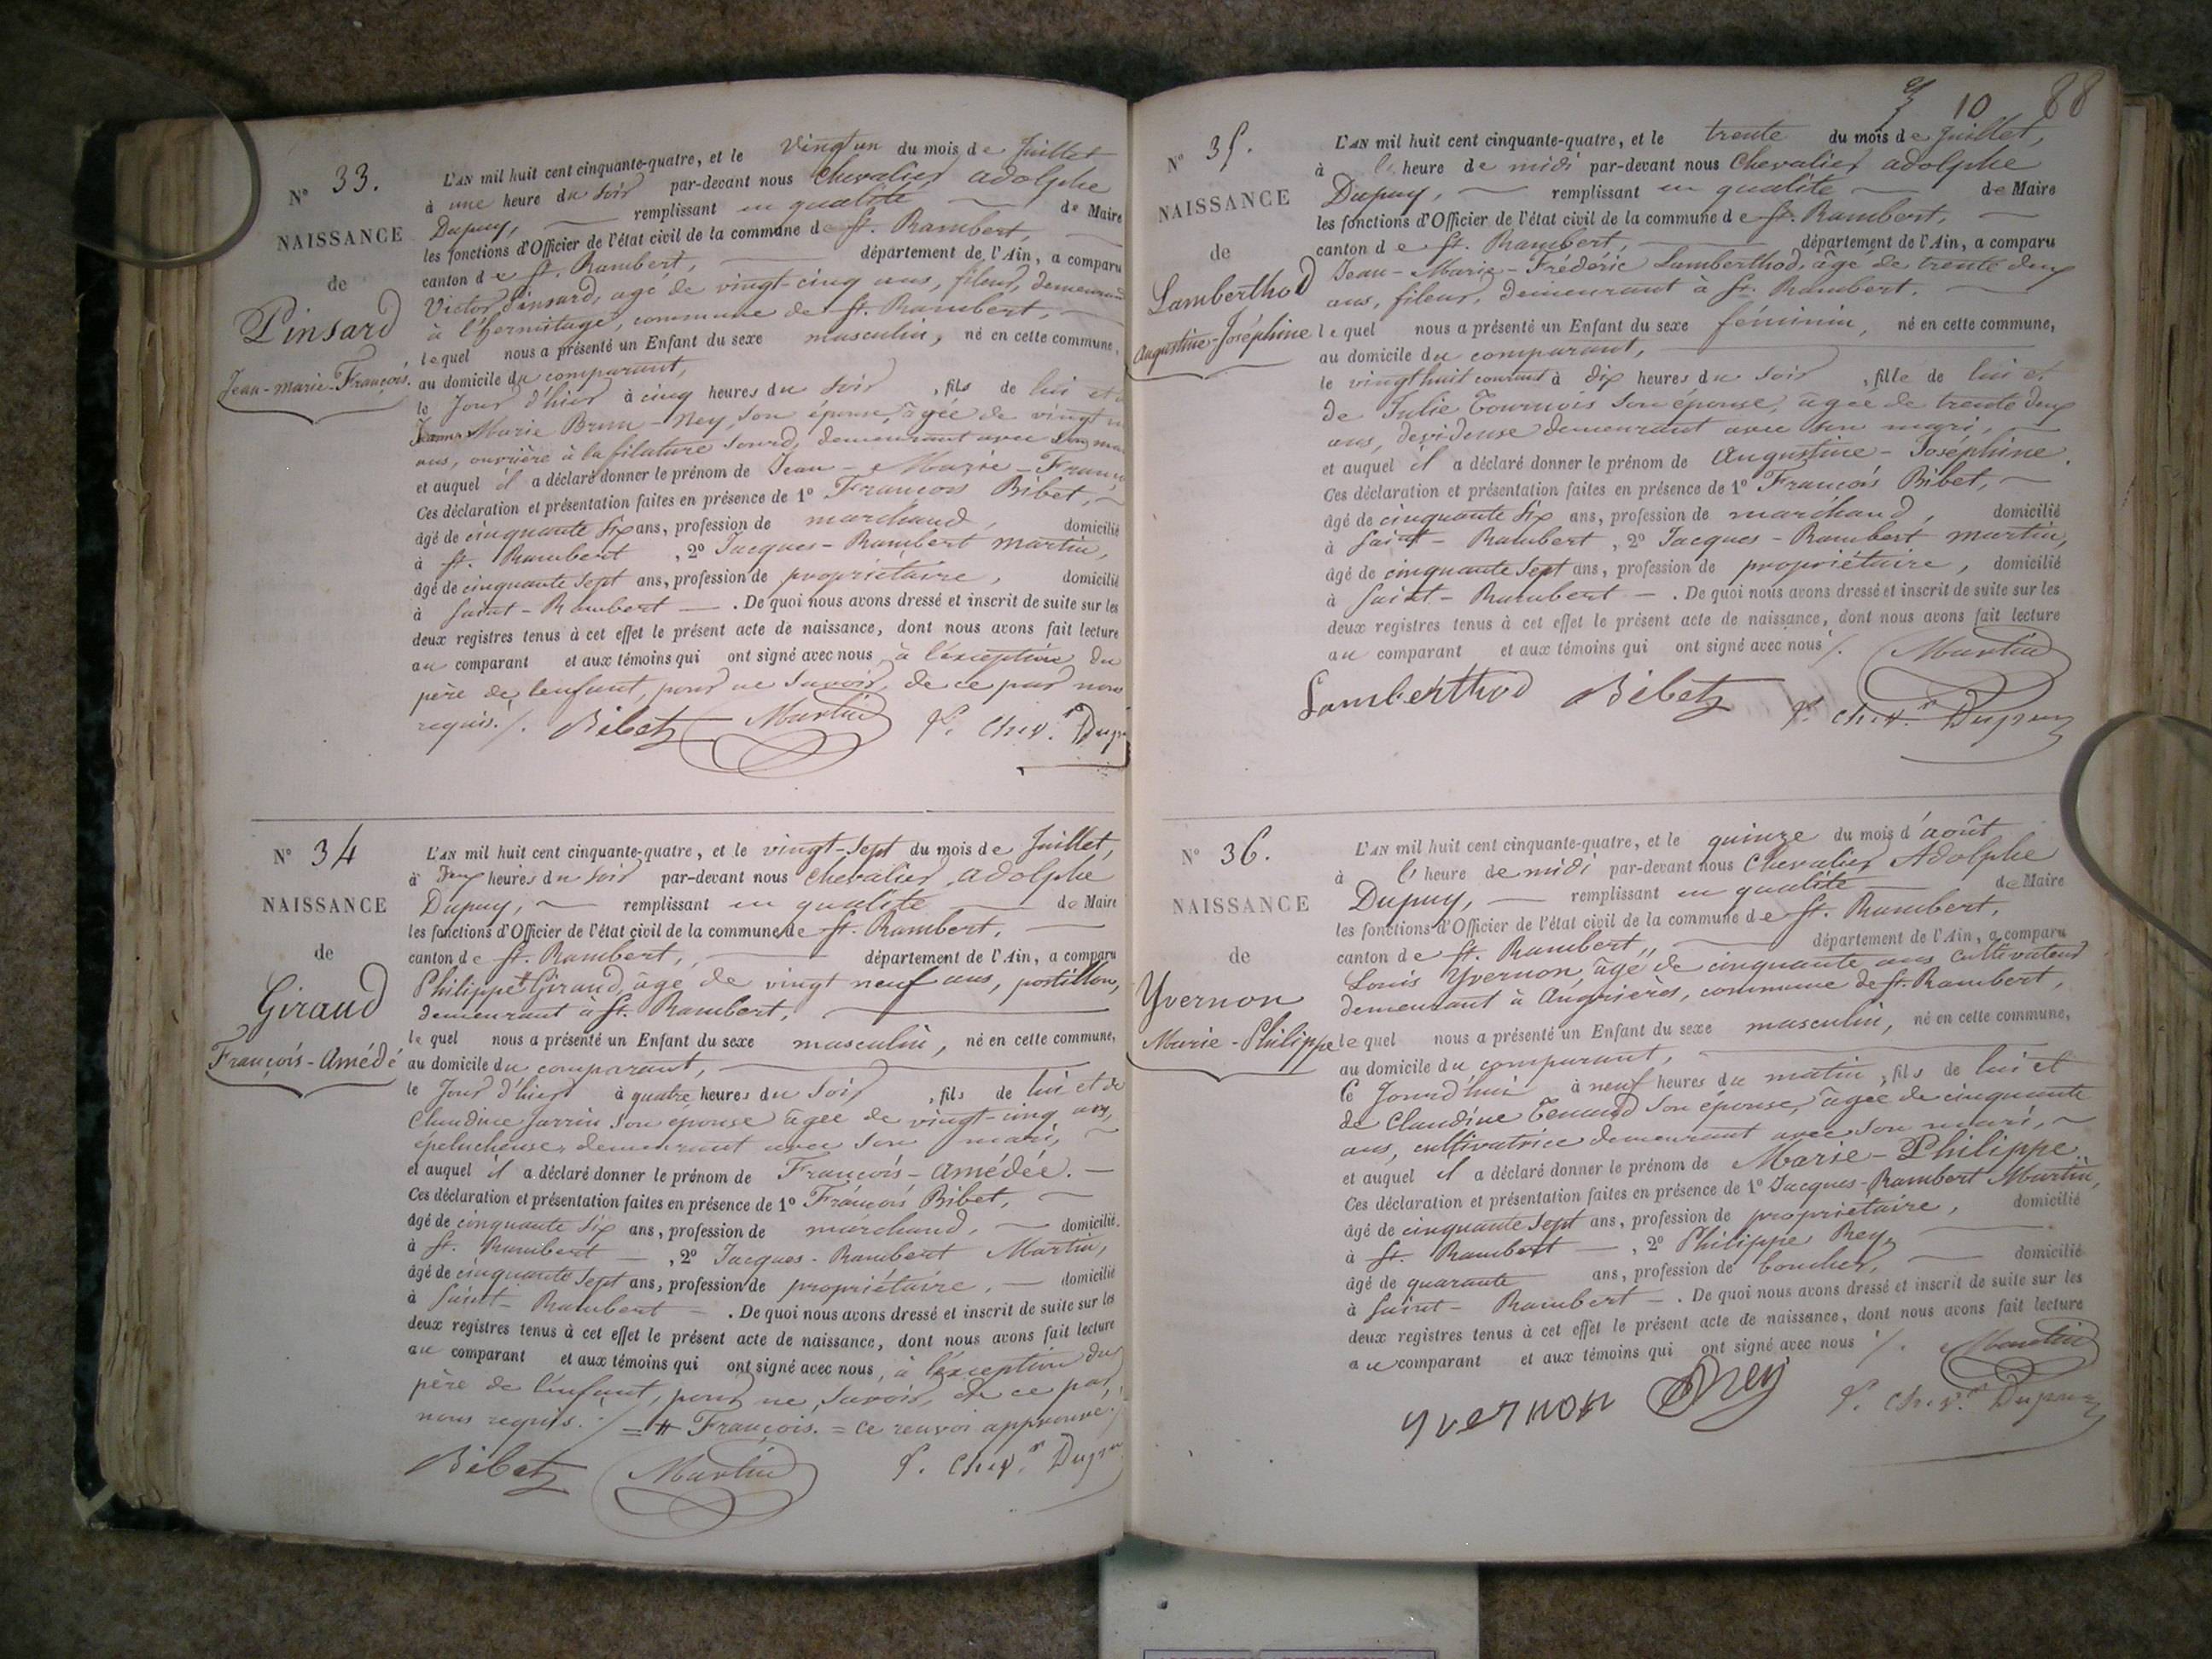 N° 33.
NAISSANCE
de
Pinsard
Jean-marie-François.
L'AN mil huit cent cinquante-quatre, et le vingt un du mois de Juillet
à une heure du soir par-devant nous Chevalier adolphe
Dupuy, remplissant en qualité de Maire
les fonctions d'Officier de l'état civil de la commune de St. Rambert,
canton de St. Rambert, département de l'Ain, a comparu
Victor Pinsard, agé de vingt-cinq ans, fileur, demeurant
à l'hermitage, commune de St. Rambert,
lequel nous a présenté un Enfant du sexe masculin, né en cette commune,
au domicile du comparant,
le Jour d'hier à cinq heures du soir, fils de lui et
Marie Brun-Ney, son épouse, âgée de vingt
ans, ouvrière à la filature Sourd, demeurant avec son
et auquel il a déclaré donner le prénom de Jean-Marie-Franç
Ces déclaration et présentation faites en présence de 1° François Bibet,
âgé de cinquante six ans, profession de marchand, domicilié
à St. Rambert, 2° Jacques-Rambert martin,
âgé de cinquante sept ans, profession de propriétaire, domicilié
à Saint-Rambert. De quoi nous avons dressé et inscrit de suite sur les
deux registres tenus à cet effet le présent acte de naissance, dont nous avons fait lecture
au comparant et aux témoins qui ont signé avec nous à l'exception du
père de l'enfant, pour ne savoir, de ce par nous
requis./. Bibet Martin P. Chev.r Dupu
N° 34
NAISSANCE
de
Giraud
François-Amédé
L'AN mil huit cent cinquante-quatre, et le vingt-sept du mois de Juillet,
à deux heures du soir par-devant nous Chevalier, adolphe
Dupuy, remplissant en qualité de Maire
les fonctions d'Officier de l'état civil de la commune de St. Rambert,
canton de St. Rambert, département de l'Ain, a comparu
Philippe # Giraud, âgé de vingt neuf ans, postillon,
demeurant à St. Rambert,
lequel nous a présenté un Enfant du sexe masculin, né en cette commune,
au domicile du comparant,
le Jour d'hier à quatre heures du soir, fils de lui et de
Claudine Jarrin son épouse âgée de vingt-cinq ans,
éplucheuse, demeurant avec son mari,
et auquel il a déclaré donner le prénom de François-Amédée.
Ces déclaration et présentation faites en présence de 1° François Bibet,
âgé de cinquante six ans, profession de marchand, domicilié
à St. Rambert, 2° Jacques-Rambert Martin,
âgé de cinquante sept ans, profession de propriétaire, domicilié
à Saint-Rambert. De quoi nous avons dressé et inscrit de suite sur les
deux registres tenus à cet effet le présent acte de naissance, dont nous avons fait lecture
au comparant et aux témoins qui ont signé avec nous, à l'exception du
père de l'enfant, pour ne, savoir, de ce par,
nous requis./. = # François. = ce renvoi approuvé.
Bibet Martin P. Chev.r Dupuy
10 88
N° 35.
NAISSANCE
de
Lamberthod
Augustine-Joséphine
L'AN mil huit cent cinquante-quatre, et le trente du mois de Juillet,
à l' heure de midi par-devant nous Chevalier adolphe
Dupuy, remplissant en qualité de Maire
les fonctions d'Officier de l'état civil de la commune de St. Rambert,
canton de St. Rambert, département de l'Ain, a comparu
Jean-Marie-Frédéric Lamberthod, âgé de trente deux
ans, fileur, demeurant à St. Rambert.
lequel nous a présenté un Enfant du sexe féminin, né en cette commune,
au domicile du comparant,
le vingt huit courant à dix heures du soir, fille de lui et
de Julie Tournois son épouse, âgée de trente deux
ans, devideuse demeurant avec son mari,
et auquel il a déclaré donner le prénom de Augustine-Joséphine.
Ces déclaration et présentation faites en présence de 1° François Bibet,
âgé de cinquante six ans, profession de marchand, domicilié
à Saint-Rambert, 2° Jacques-Rambert martin,
âgé de cinquante sept ans, profession de propriétaire, domicilié
à Saint-Rambert. De quoi nous avons dressé et inscrit de suite sur les
deux registres tenus à cet effet le présent acte de naissance, dont nous avons fait lecture
au comparant et aux témoins qui ont signé avec nous /. Martin
Lamberthod Bibet P. Chev.r Dupuy
N° 36.
NAISSANCE
de
Yvernon
Marie-Philippe
L'AN mil huit cent cinquante-quatre, et le quinze du mois d'août
à l' heure de midi par-devant nous Chevalier Adolphe
Dupuy, remplissant en qualité de Maire
les fonctions d'Officier de l'état civil de la commune de St. Rambert,
canton de St. Rambert, département de l'Ain, a comparu
Louis Yvernon, âgé de cinquante ans cultivateur
demeurant à Angrières, commune de St. Rambert,
lequel nous a présenté un Enfant du sexe masculin, né en cette commune,
au domicile du comparant,
le Jourd'hui à neuf heures du matin, fils de lui et
de Claudine Tenand son épouse, âgée de cinquante
ans, cultivatrice demeurant avec son mari,
et auquel il a déclaré donner le prénom de Marie-Philippe.
Ces déclaration et présentation faites en présence de 1° Jacques-Rambert Martin,
âgé de cinquante sept ans, profession de propriétaire, domicilié
à St. Rambert, 2° Philippe Rey,
âgé de quarante ans, profession de boucher, domicilié
à Saint-Rambert. De quoi nous avons dressé et inscrit de suite sur les
deux registres tenus à cet effet le présent acte de naissance, dont nous avons fait lecture
au comparant et aux témoins qui ont signé avec nous /. Martin
yvernon Rey P. Chev.r Dupuy